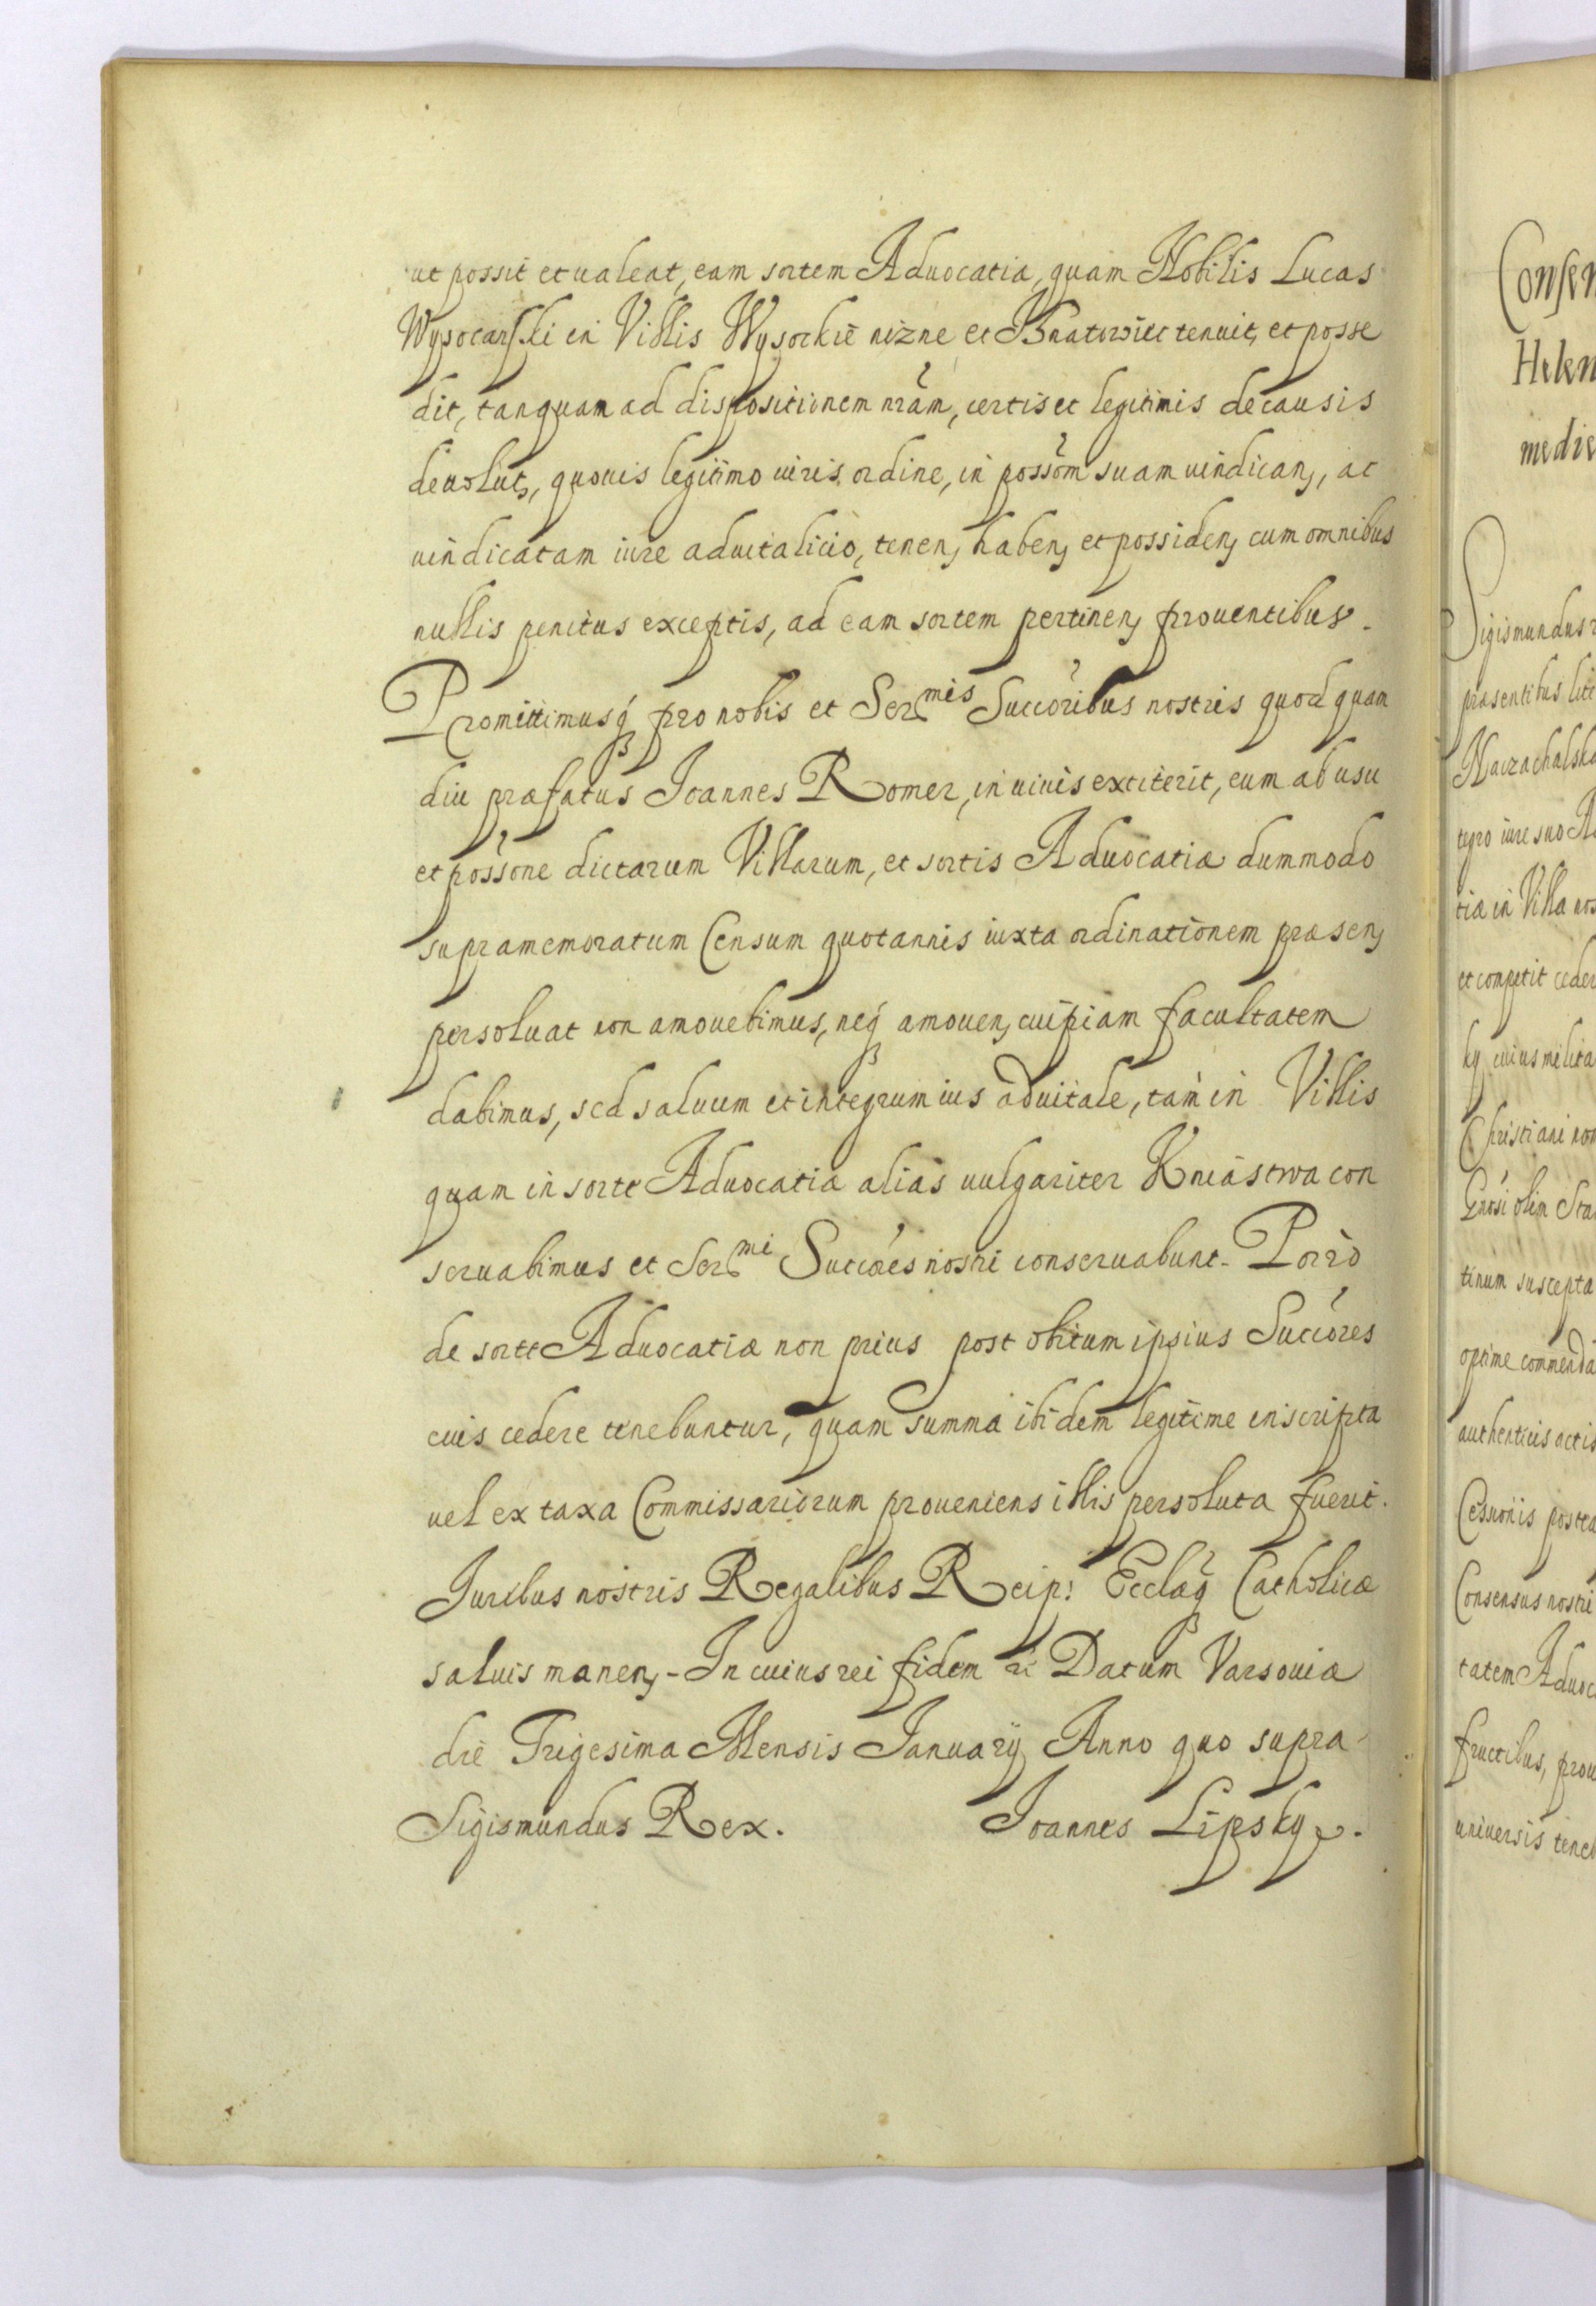 ut possit et ualeat, eam sortem Aduocatiæ, quam Nobilis Lucas
Wysoczański in Villis Wysockie nizne et tenuit, et posse
dit, tanquam ad dispositionem nrãm, certis et legitimis de causis
deuolut, quouis legitimo iuris ordine, in possõm suam uindican, ac
uindicatam iure aduitalicio, tenen, haben, et possiden, cum omnibus
nullis penitus exceptis, ad eam sortem pertinen, prouentibus.
Promittimusq pro nobis et Ser^mis Succõribus nostris quod quam
diu præfatus Ioannes Romer, in uiuis extiterit, eum ab usu
et possõne dictarum Villarum, et sortis Aduocatiæ dummodo
supramemoratum Censum quotannis iuxta ordinationem præsen,
persoluat non amouebimus, neq amouen, cuipiam facultatem
dabimus, sed saluum et integrum ius aduitale, tam in Villis
quam in sorte Aduocatiæ alias uulgariter Kniastwa con
seruabimus et Ser^mi Succões nostri conseruabunt. Porrò
de sorte Aduocatiæ non prius post obitum ipsius Succõres
eius cedere tenebuntur, quam summa ibidem legitime inscripta
uel ex taxa Commissariorum proueniens illis persoluta fuerit.
Iuribus nostris Regalibus Reip: Ecclæq Catholicæ
saluis manen,- In cuius rei fidem Datum Varsouiæ
die Trigesima Mensis Ianuarij Anno quo supra
Sigismundus Rex. Ioannes Lipsky.
Consen
Helen
medie
Sigismundus
præsentibus lite
tegro iure suo A
tiæ in Villa nos
et competit ceder
ky cuius milita
Christiani nom
Gñosi olim Sta
tinum suscepta
optime commenda
authenticis actis
Cessionis postea
Consensus nostri
tatem Aduoc
fructibus, prou
uniuersis teneb